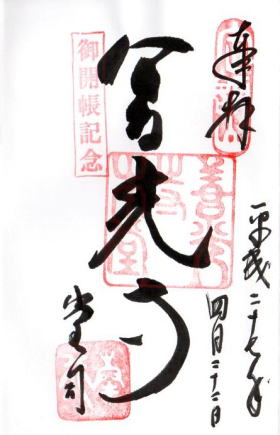 奉拝
平成二十七年
四月二十二日
善光寺
御開帳記念
堂司